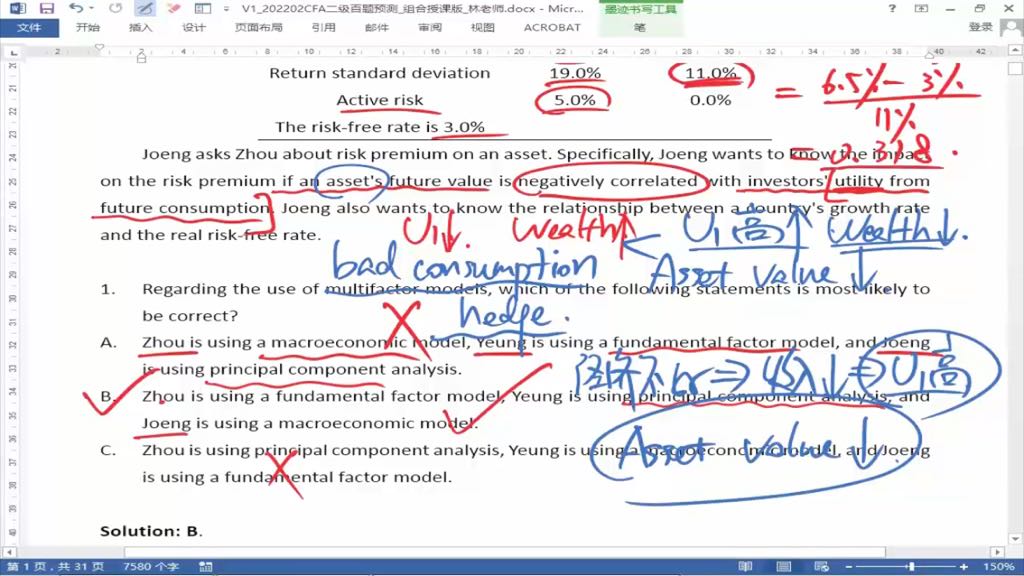 V1_202202CFA二级百题预测_组合授课版_林老师.docx - Mic...
墨迹书写工具
文件 开始 插入 设计 页面布局 引用 邮件 审阅 视图 ACROBAT 笔 登录
Return standard deviation 19.0% 11.0%
Active risk 5.0% 0.0%
= 6.5% - 3%
11%
The risk-free rate is 3.0%
Joeng asks Zhou about risk premium on an asset. Specifically, Joeng wants to know the impact
on the risk premium if an asset's future value is negatively correlated with investors' utility from
future consumption. Joeng also wants to know the relationship between a country's growth rate
and the real risk-free rate.
U1↓. Wealth↑ ← U1(高)↑ Wealth↓.
bad consumption Asset Value ↓
hedge.
1. Regarding the use of multifactor models, which of the following statements is most likely to
be correct?
A. Zhou is using a macroeconomic model, Yeung is using a fundamental factor model, and Joeng
is using principal component analysis.
B. Zhou is using a fundamental factor model, Yeung is using principal component analysis, and
Joeng is using a macroeconomic model.
经济不好⇒收入↓⇒U1高
Asset value↓
C. Zhou is using principal component analysis, Yeung is using a macroeconomic model, and Joeng
is using a fundamental factor model.
Solution: B.
第 1 页，共 31 页 7580 个字 150%